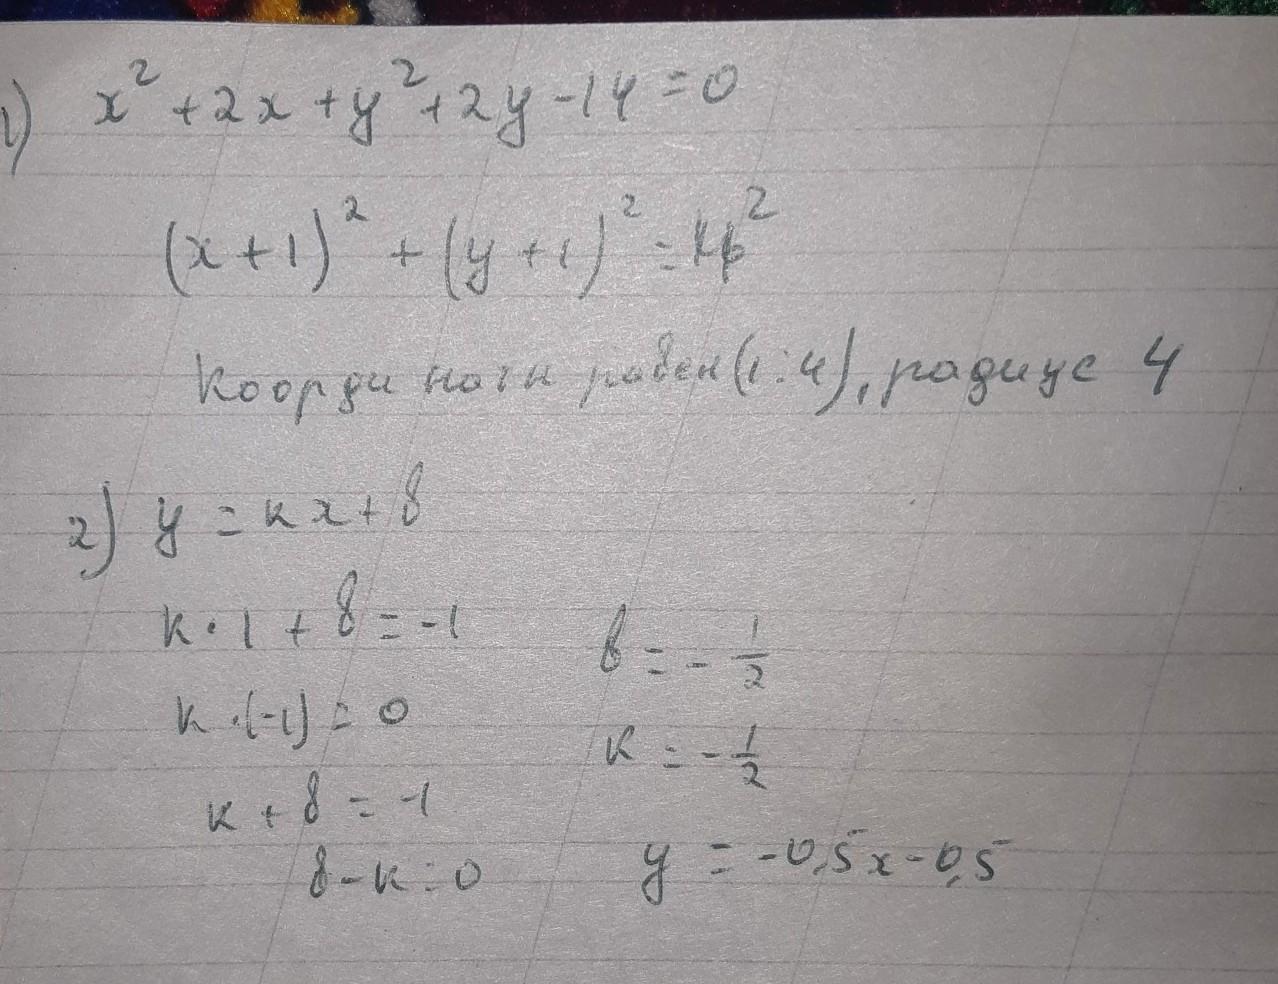 1) x² + 2x + y² + 2y - 14 = 0
(x + 1)² + (y + 1)² = 4²
Координаты равен (1:4), радиус 4
2) y = kx + b
k · 1 + b = -1
b = - 1/2
k · (-1) = 0
k = - 1/2
k + b = -1
b - k = 0
y = -0,5x - 0,5